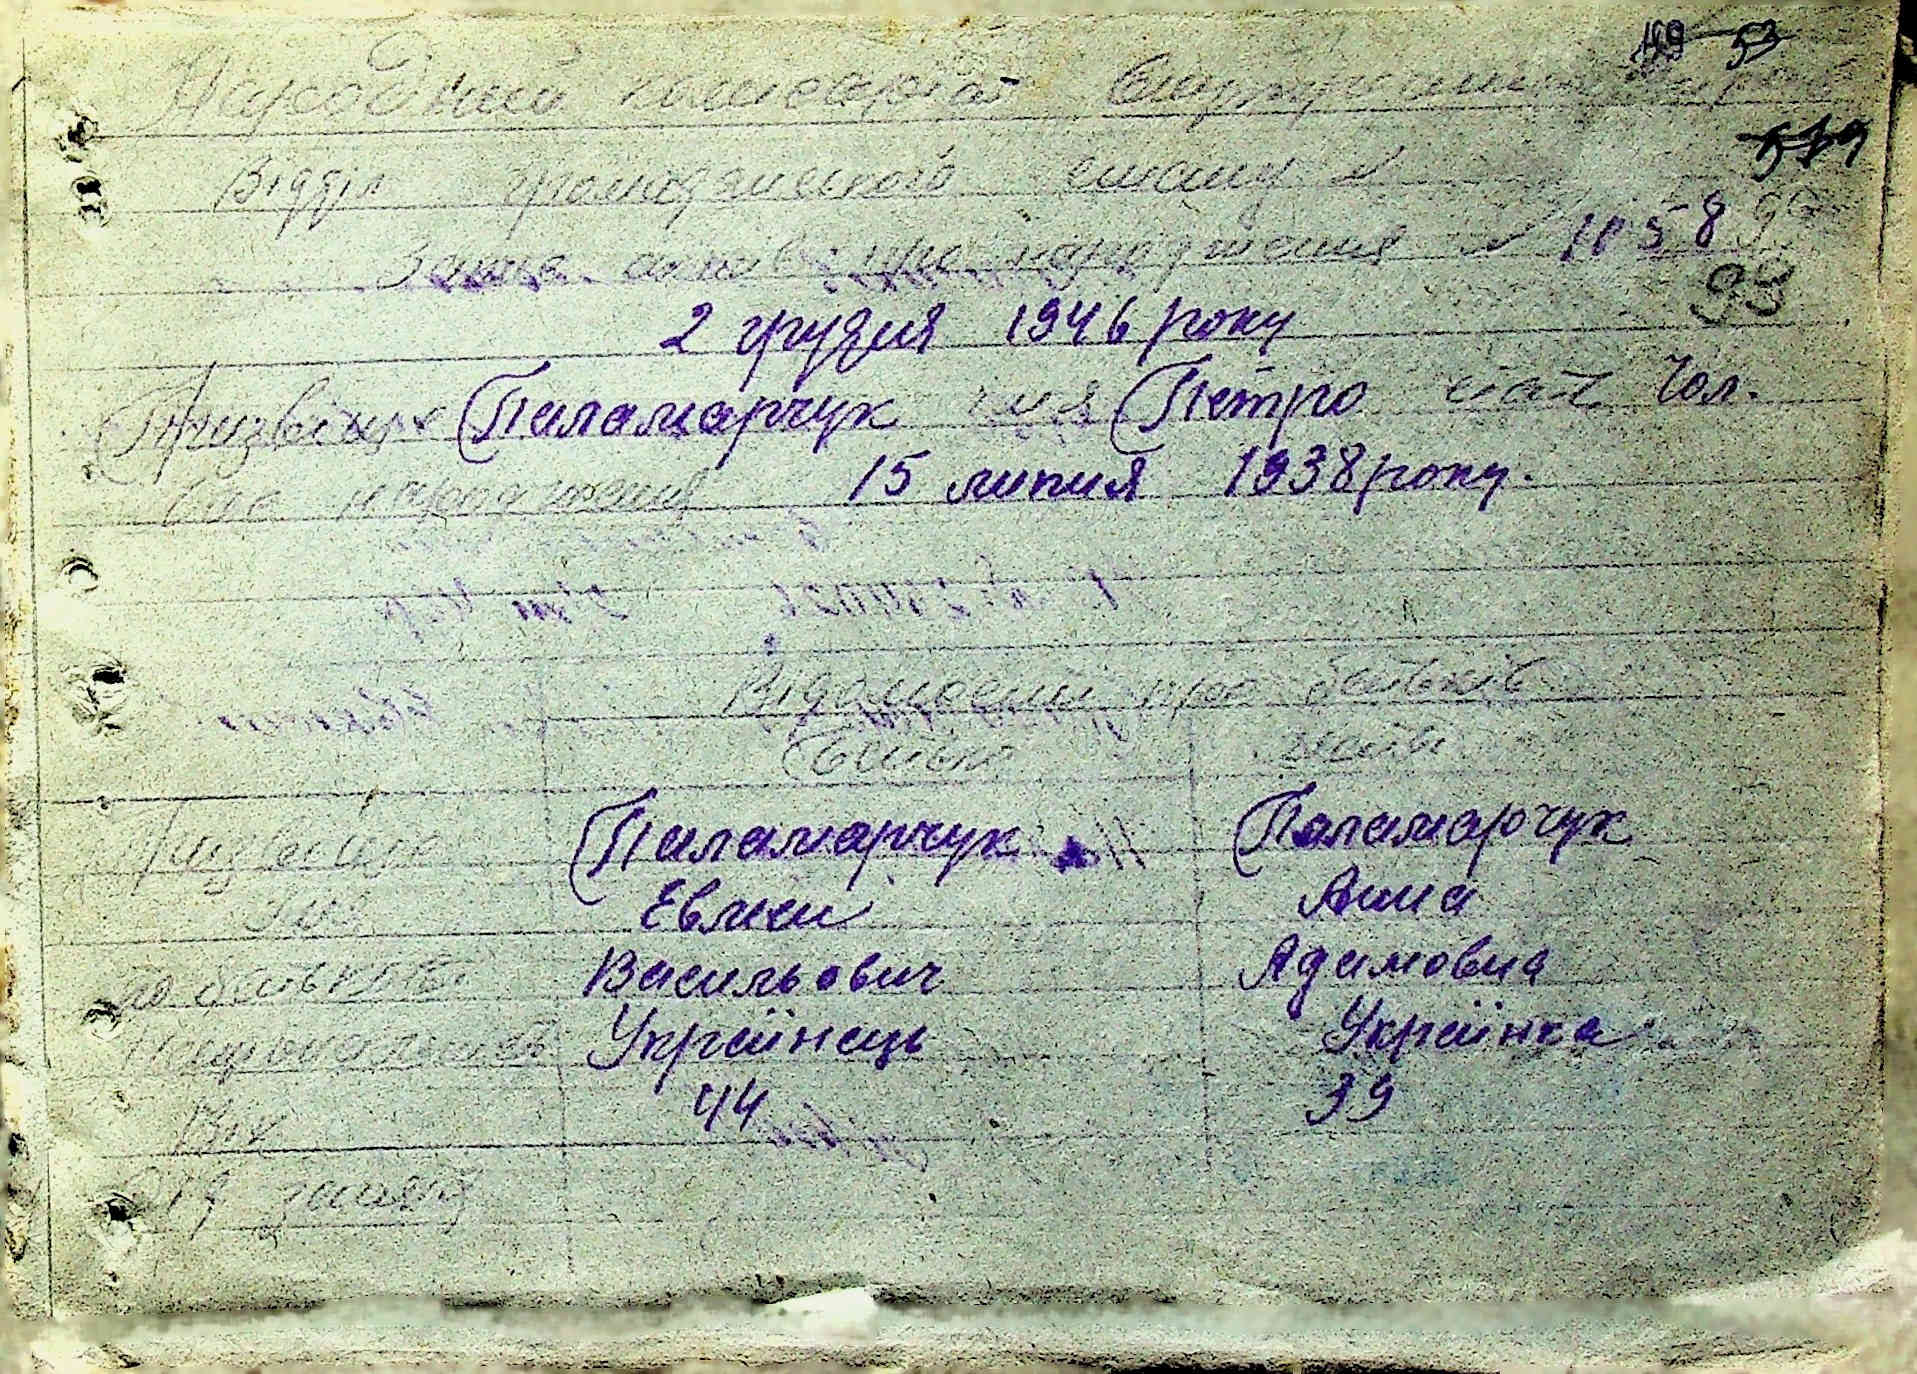 49 53
Народний комісаріат Внутрішніх справ
579
Відділ громадянського стану
90
Запис актов про народження № 1158
93
2 грудня 1946 року
Прізвище Паламарчук імя Петро стать Чол.
Час народження 15 липня 1938 року.
Відомості про батьків
Батько мати
Прізвище Паламарчук Паламарчук
Імя Евлин Анна
по батькові Васильович Адамовна
Національність Українець Українка
Вік 44 39